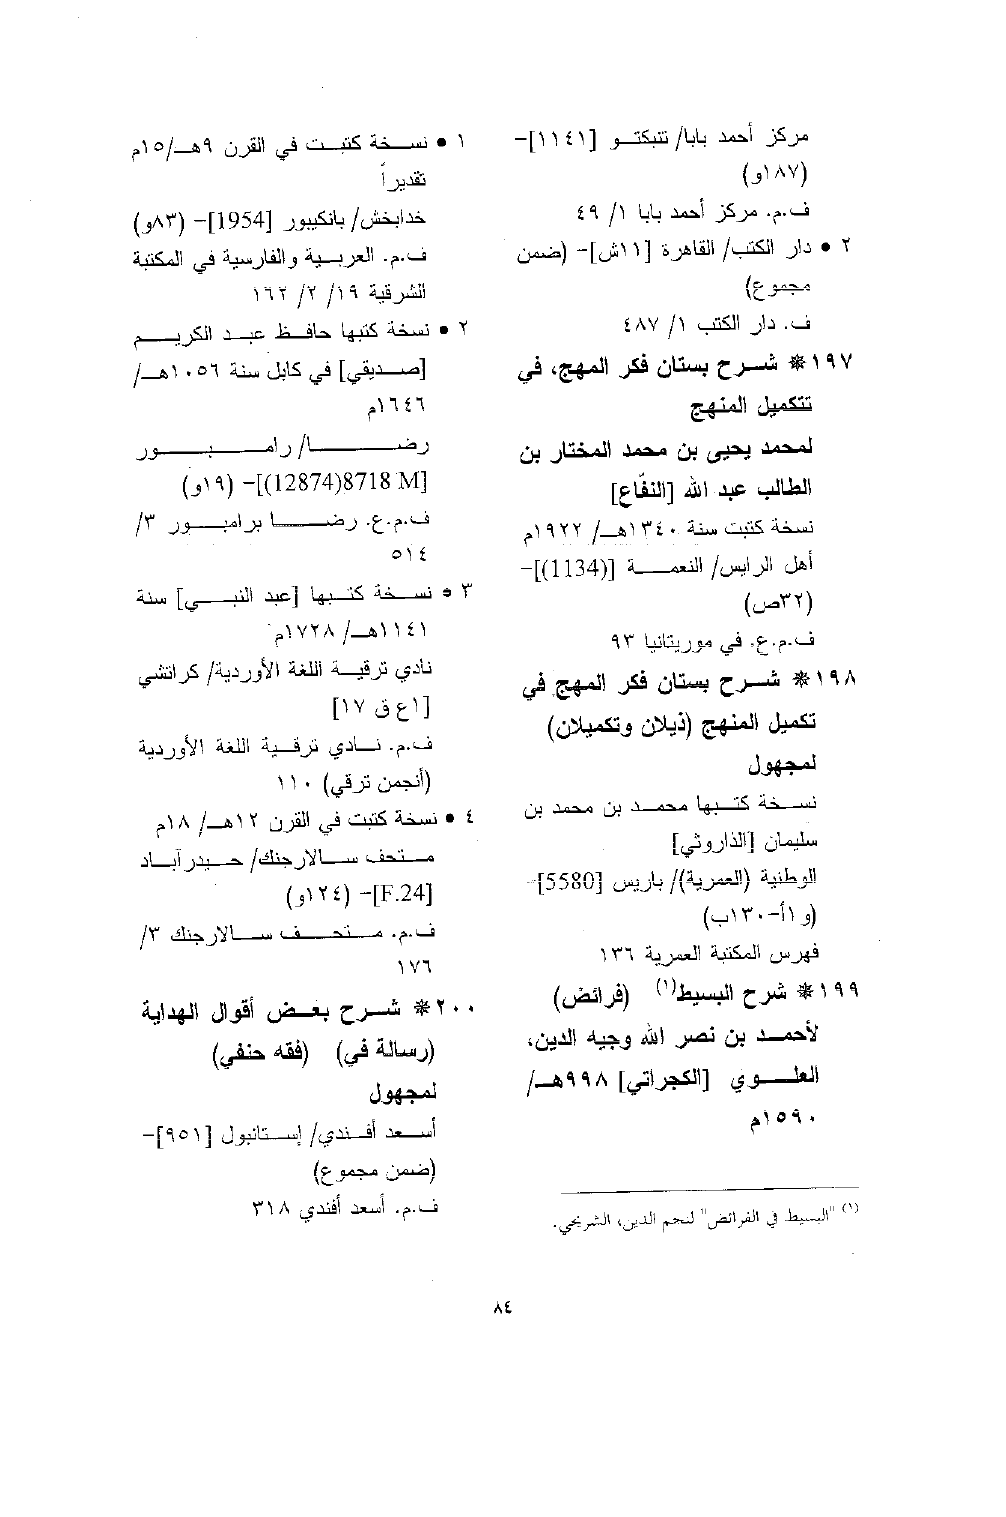 مركز أحمد بابا/ تنبكتو [١١٤١]-
(١٨٧و)
ف.م. مركز أحمد بابا ١/ ٤٩
٢ • دار الكتب/ القاهرة [١١ش]- (ضمن
مجموع)
ف. دار الكتب ١/ ٤٨٧
١٩٧* شرح بستان فكر المهج، في
تتكميل المنهج
لمحمد يحيى بن محمد المختار بن
الطالب عبد الله [النفّاع]
نسخة كتبت سنة ١٣٤٠هـ/ ١٩٢٢م
أهل الرايس/ النعمة [(1134)]-
(٣٢ص)
ف.م.ع. في موريتانيا ٩٣
١٩٨* شرح بستان فكر المهج في
تكميل المنهج (ذيلان وتكميلان)
لمجهول
نسخة كتبها محمد بن محمد بن
سليمان [الذاروثي]
الوطنية (العمرية)/ باريس [5580]-
(و١أ-١٣٠ب)
فهرس المكتبة العمرية ١٣٦
١٩٩* شرح البسيط(١) (فرائض)
لأحمد بن نصر الله وجيه الدين،
العلوي [الكجراتي] ٩٩٨هـ/
١٥٩٠م
(١) "البسيط في الفرائض" لنجم الدين، الشريحي.
١ • نسخة كتبت في القرن ٩هـ/١٥م
تقديراً
خدابخش/ بانكيبور [1954]- (٨٣و)
ف.م. العربية والفارسية في المكتبة
الشرقية ١٩/ ٢/ ١٦٢
٢ • نسخة كتبها حافظ عبد الكريم
[صديقي] في كابل سنة ١٠٥٦هـ/
١٦٤٦م
رضا/ رامبور
[8718 M(12874)]- (١٩و)
ف.م.ع. رضا برامبور ٣/
٥١٤
٣ • نسخة كتبها [عبد النبي] سنة
١١٤١هـ/ ١٧٢٨م
نادي ترقية اللغة الأوردية/ كراتشي
[١ع ق ١٧]
ف.م. نادي ترقية اللغة الأوردية
(أنجمن ترقي) ١١٠
٤ • نسخة كتبت في القرن ١٢هـ/ ١٨م
متحف سالارجنك/ حيدرآباد
[F.24]- (١٢٤و)
ف.م. متحف سالارجنك ٣/
١٧٦
٢٠٠* شرح بعض أقوال الهداية
(رسالة في) (فقه حنفي)
لمجهول
أسعد أفندي/ إستانبول [٩٥١]-
(ضمن مجموع)
ف.م. أسعد أفندي ٣١٨
٨٤